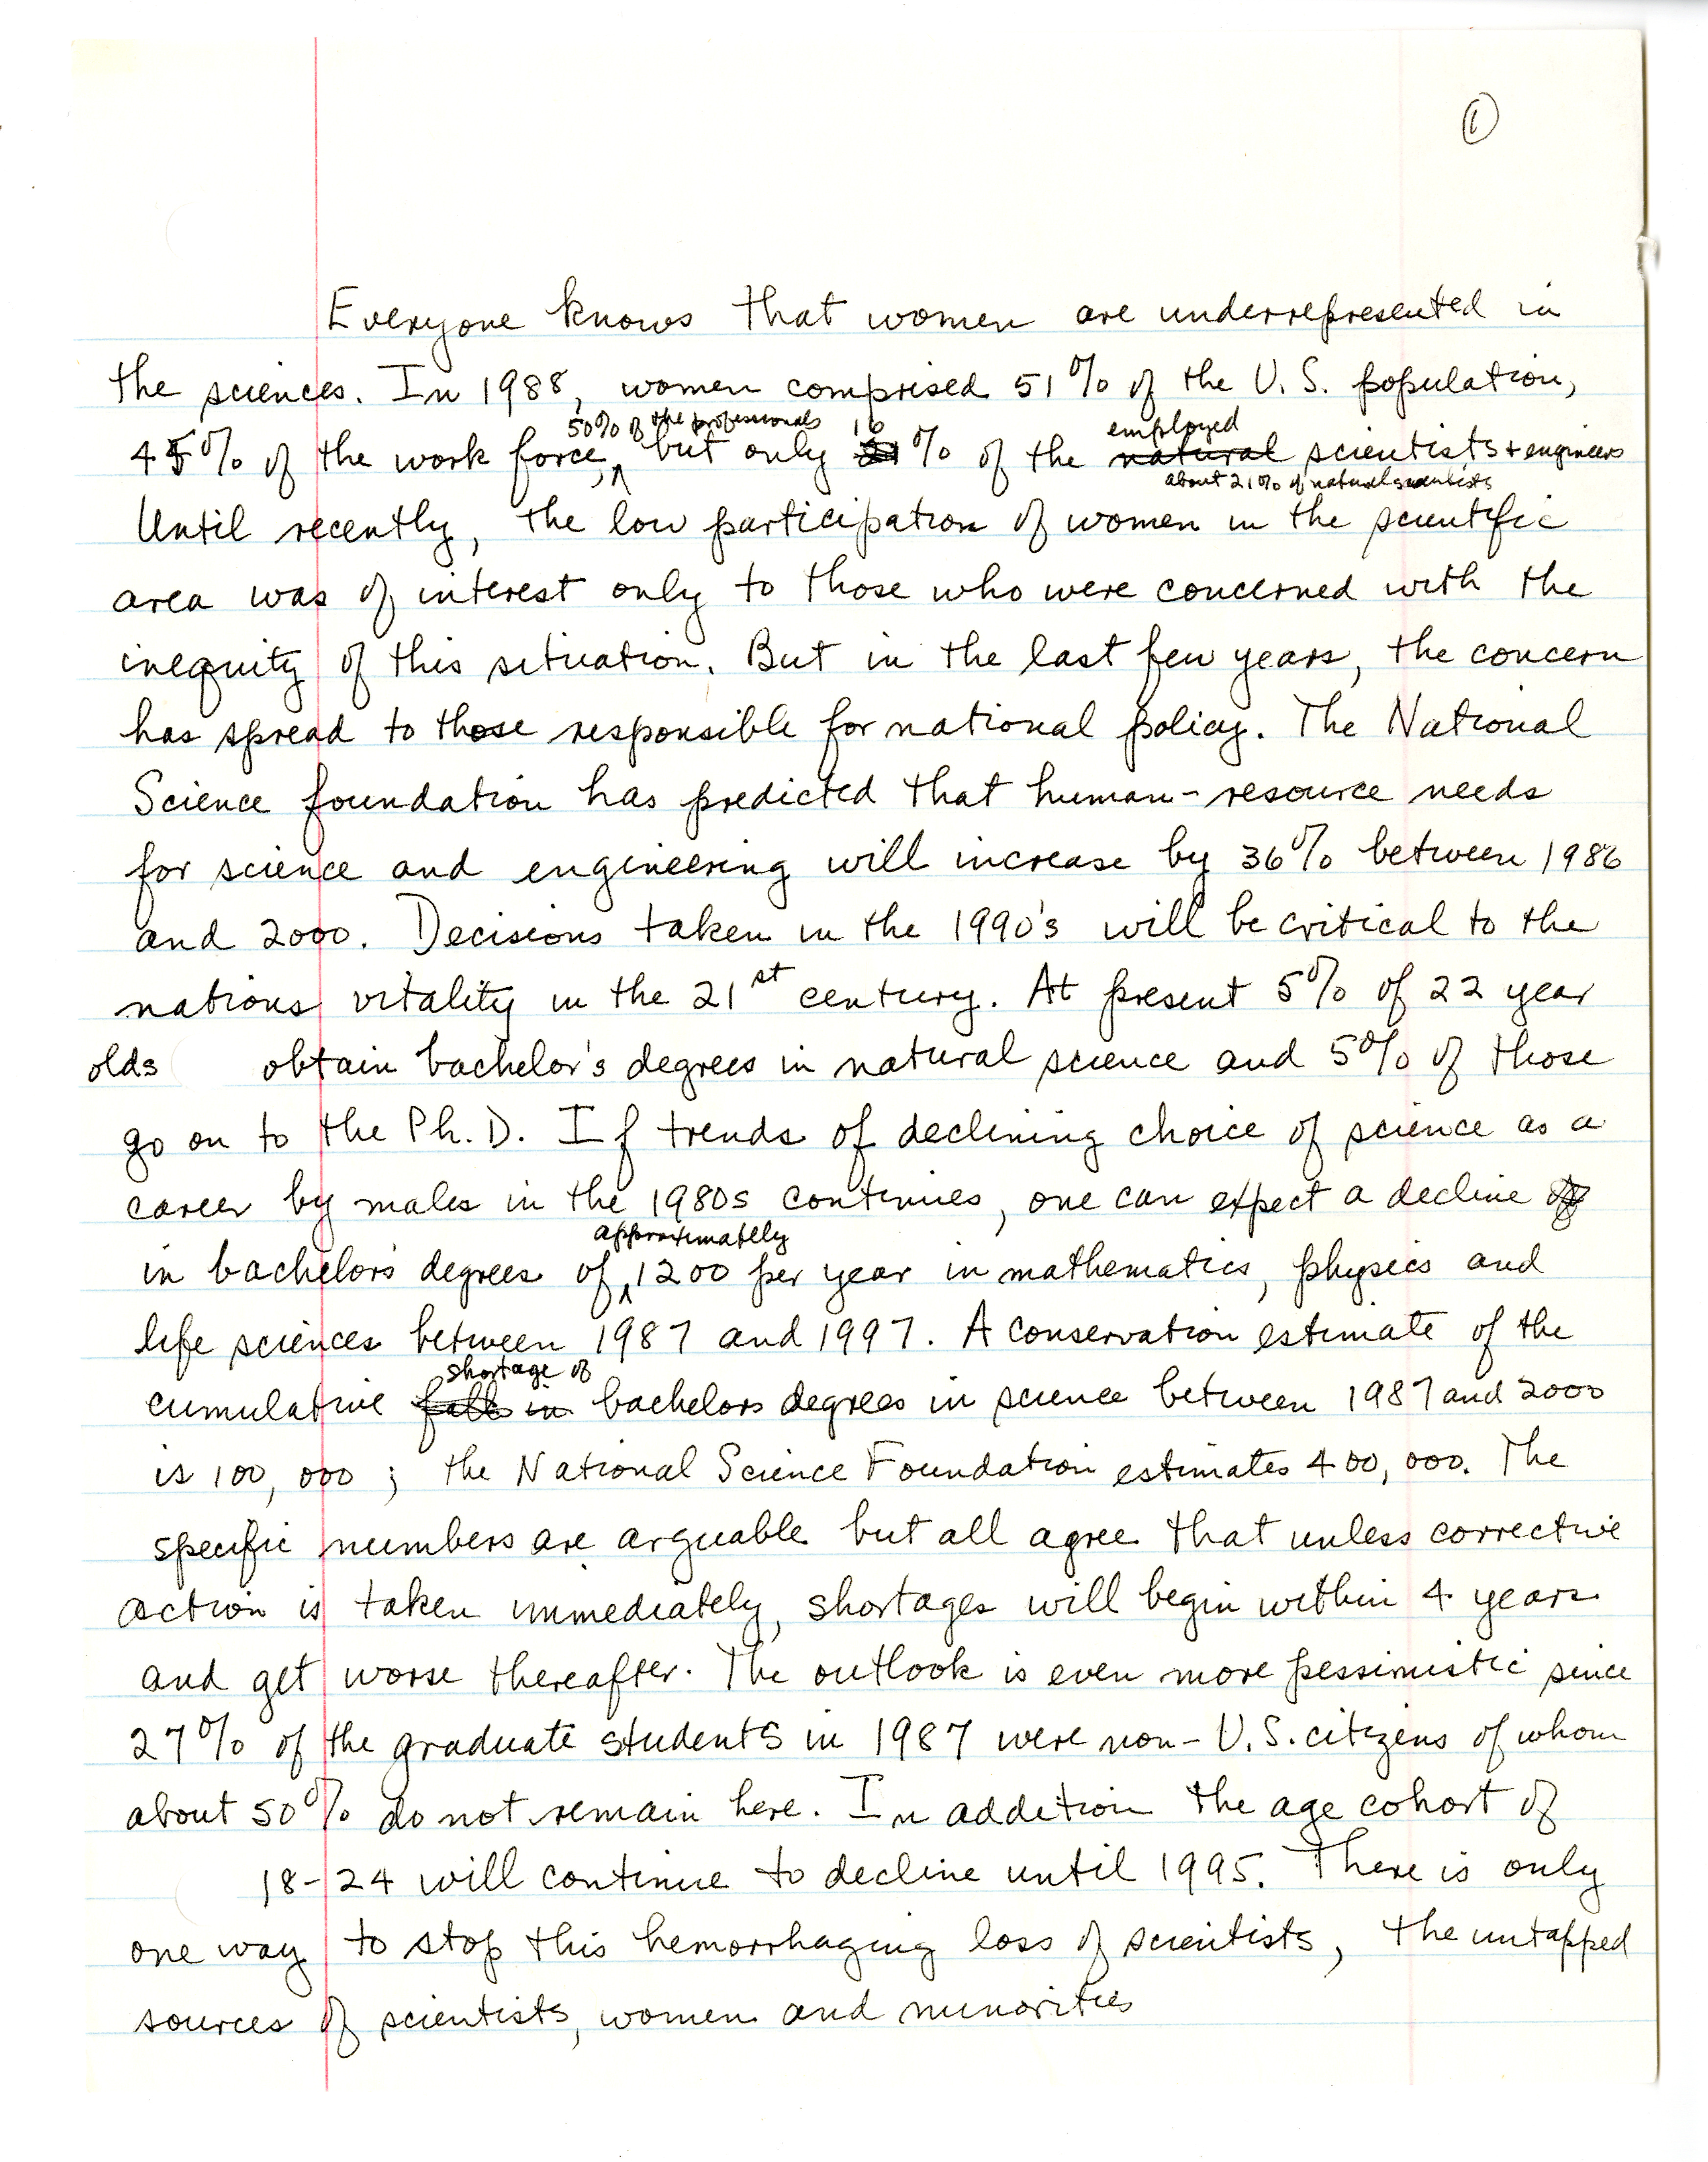 1
Everyone knows that women are underrepresented in
the sciences. In 1988, women comprised 51% of the U.S. population,
50% of the professionals 16 employed
45% of the work force, but only % of the natural scientists + engineers
about 21% of natural scientists
Until recently, the low participation of women in the scientific
area was of interest only to those who were concerned with the
inequity of this situation. But in the last few years, the concern
has spread to those responsible for national policy. The National
Science foundation has predicted that human-resource needs
for science and engineering will increase by 36% between 1986
and 2000. Decisions taken in the 1990's will be critical to the
nations vitality in the 21st century. At present 5% of 22 year
olds obtain bachelor's degrees in natural science and 5% of those
go on to the Ph.D. If trends of declining choice of science as a
career by males in the 1980s continues, one can expect a decline
approximatelly
in bachelors degrees of 1200 per year in mathematics, physics and
life sciences between 1987 and 1997. A conservation estimate of the
shortage of
cumulative falls in bachelors degrees in science between 1987 and 2000
is 100,000; the National Science Foundation estimates 400,000. The
specific numbers are arguable but all agree that unless corrective
action is taken immediately, shortages will begin within 4 years
and get worse thereafter. The outlook is even more pessimistic since
27% of the graduate students in 1987 were non-U.S. citizens of whom
about 50% do not remain here. In addition the age cohort of
18-24 will continue to decline until 1995. There is only
one way to stop this hemorrhaging loss of scientists, the untapped
sources of scientists, women and minorities